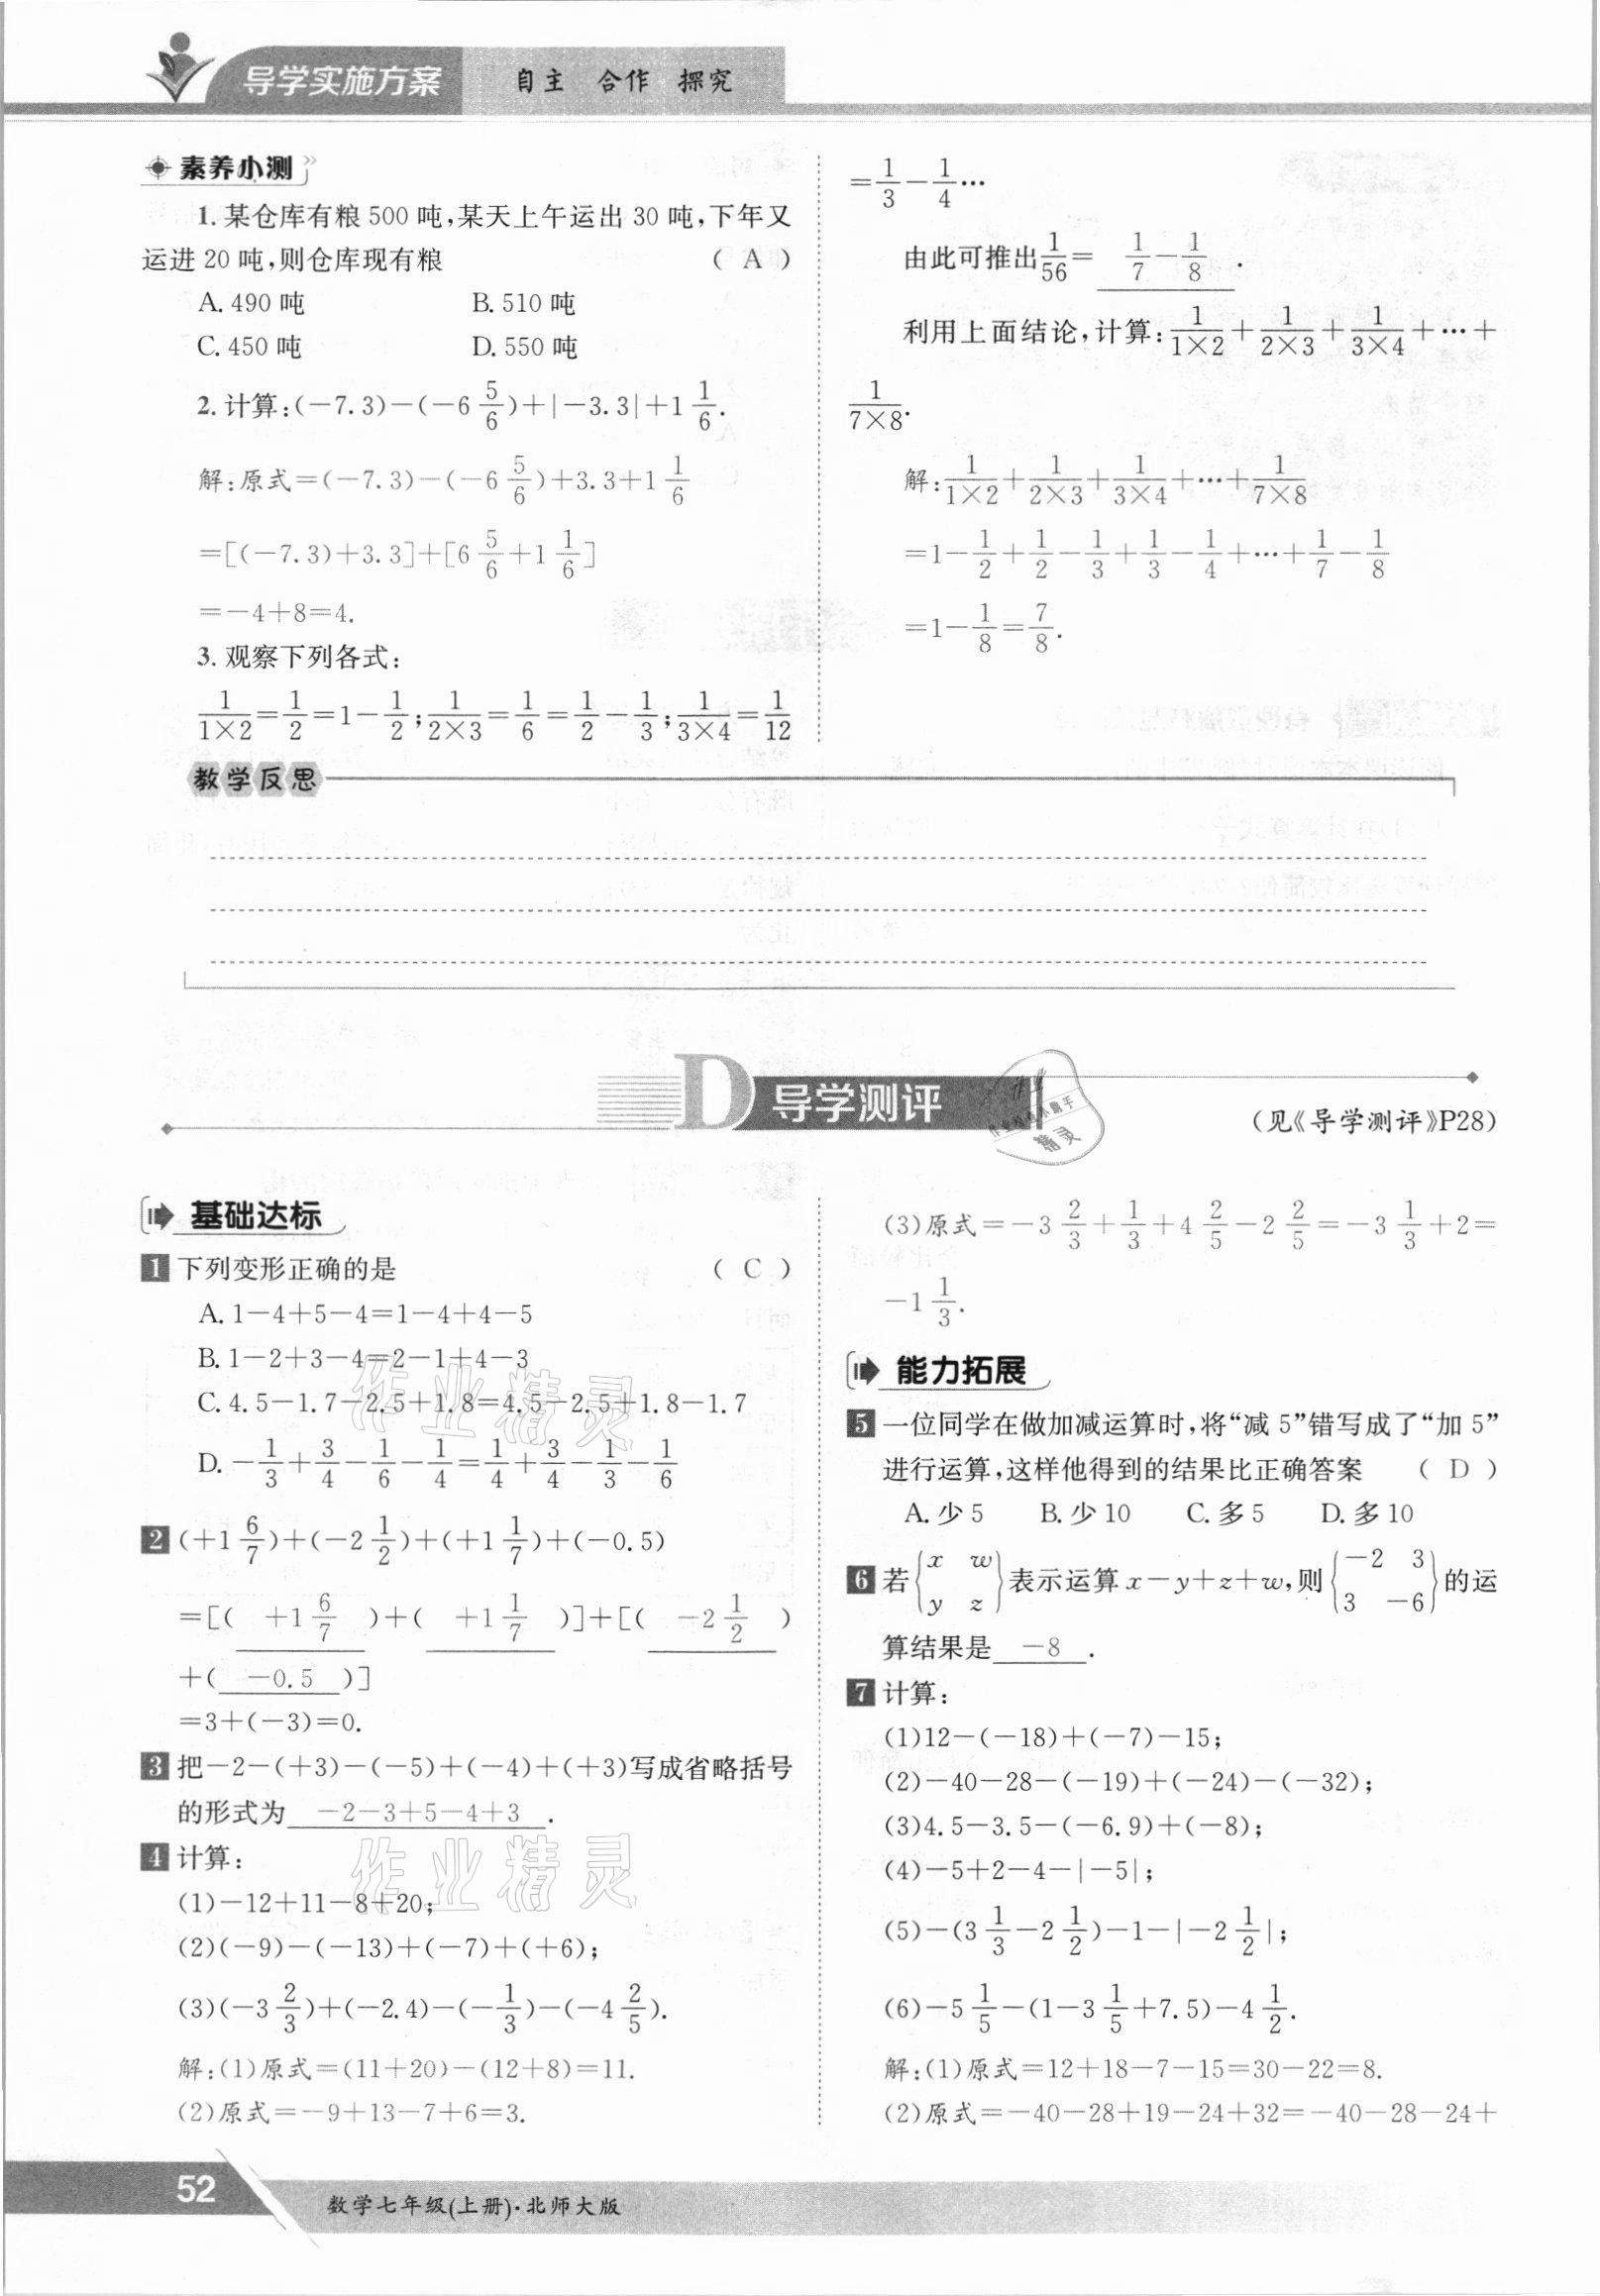 导学实施方案 自主 合作 探究
素养小测
1. 某仓库有粮 500 吨,某天上午运出 30 吨,下年又
运进 20 吨,则仓库现有粮 ( A )
A. 490 吨 B. 510 吨
C. 450 吨 D. 550 吨
2. 计算:(-7.3)-(-6 5/6)+|-3.3|+1 1/6.
解:原式=(-7.3)-(-6 5/6)+3.3+1 1/6
=[(-7.3)+3.3]+[6 5/6+1 1/6]
=-4+8=4.
3. 观察下列各式:
1/(1×2)=1/2=1-1/2;1/(2×3)=1/6=1/2-1/3;1/(3×4)=1/12
=1/3-1/4…
由此可推出1/56= 1/7-1/8 .
利用上面结论,计算:1/(1×2)+1/(2×3)+1/(3×4)+…+
1/(7×8).
解:1/(1×2)+1/(2×3)+1/(3×4)+…+1/(7×8)
=1-1/2+1/2-1/3+1/3-1/4+…+1/7-1/8
=1-1/8=7/8.
教学反思
D 导学测评
(见《导学测评》P28)
作业检查小助手
精灵
基础达标
1 下列变形正确的是 ( C )
A. 1-4+5-4=1-4+4-5
B. 1-2+3-4=2-1+4-3
C. 4.5-1.7-2.5+1.8=4.5-2.5+1.8-1.7
D. -1/3+3/4-1/6-1/4=1/4+3/4-1/3-1/6
2 (+1 6/7)+(-2 1/2)+(+1 1/7)+(-0.5)
=[( +1 6/7 )+( +1 1/7 )]+[( -2 1/2 )
+( -0.5 )]
=3+(-3)=0.
3 把-2-(+3)-(-5)+(-4)+(+3)写成省略括号
的形式为 -2-3+5-4+3 .
4 计算:
(1)-12+11-8+20;
(2)(-9)-(-13)+(-7)+(+6);
(3)(-3 2/3)+(-2.4)-(-1/3)-(-4 2/5).
解:(1)原式=(11+20)-(12+8)=11.
(2)原式=-9+13-7+6=3.
(3)原式=-3 2/3+1/3+4 2/5-2 2/5=-3 1/3+2=
-1 1/3.
能力拓展
5 一位同学在做加减运算时,将“减 5”错写成了“加 5”
进行运算,这样他得到的结果比正确答案 ( D )
A. 少 5 B. 少 10 C. 多 5 D. 多 10
6 若{x w y z}表示运算 x-y+z+w,则{-2 3 3 -6}的运
算结果是 -8 .
7 计算:
(1)12-(-18)+(-7)-15;
(2)-40-28-(-19)+(-24)-(-32);
(3)4.5-3.5-(-6.9)+(-8);
(4)-5+2-4-|-5|;
(5)-(3 1/3-2 1/2)-1-|-2 1/2|;
(6)-5 1/5-(1-3 1/5+7.5)-4 1/2.
解:(1)原式=12+18-7-15=30-22=8.
(2)原式=-40-28+19-24+32=-40-28-24+
作业精灵
作业精灵
52
数学七年级(上册)·北师大版